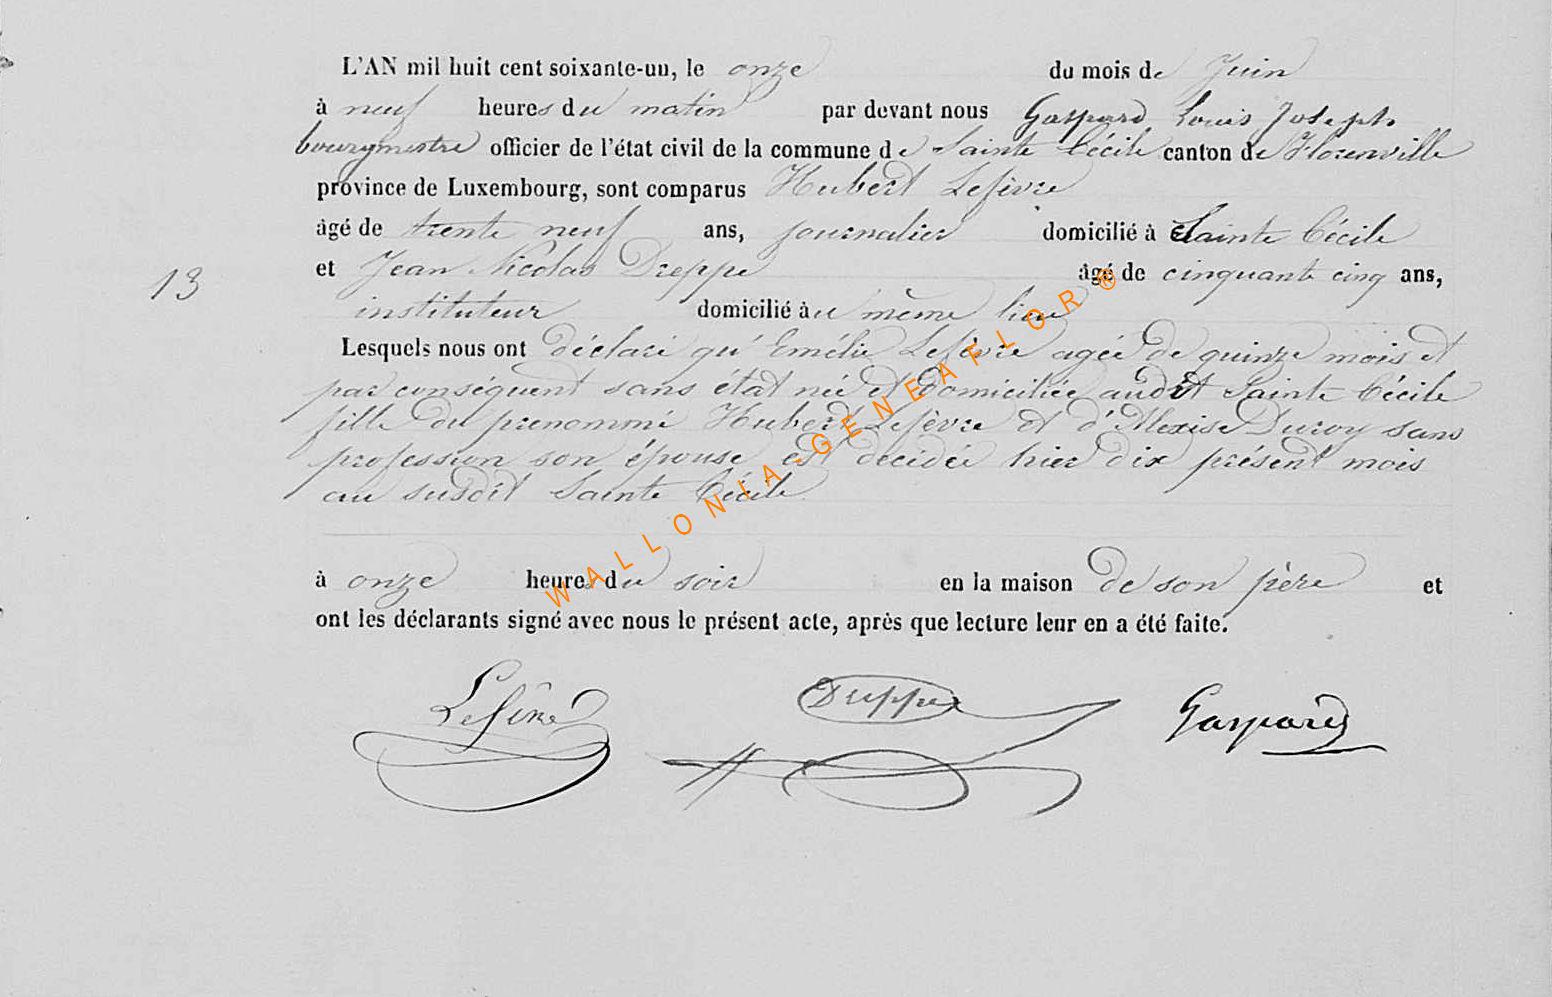 L'AN mil huit cent soixante-un, le onze du mois de Juin
à neuf heures du matin par devant nous Gaspard Louis Joseph
bourgmestre officier de l'état civil de la commune de Sainte Cécile canton de Florenville
province de Luxembourg, sont comparus Hubert Lefèvre
âgé de trente neuf ans, journalier domicilié à Sainte Cécile
13
et Jean Nicolas Dreppe âgé de cinquante cinq ans,
instituteur domicilié au même lieu
Lesquels nous ont déclaré qu'Emélie Lefèvre agée de quinze mois et
par conséquent sans état née et domiciliée audit Sainte Cécile
fille du prenommé Hubert Lefèvre et d'Alexise Duroy sans
profession son épouse, est décidée hier dix présent mois
au susdit Sainte Cécile
à onze heures du soir en la maison de son père et
ont les déclarants signé avec nous le présent acte, après que lecture leur en a été faite.
Lefèvre Dreppe Gaspard
WALLONIA-GENEAFLOR®